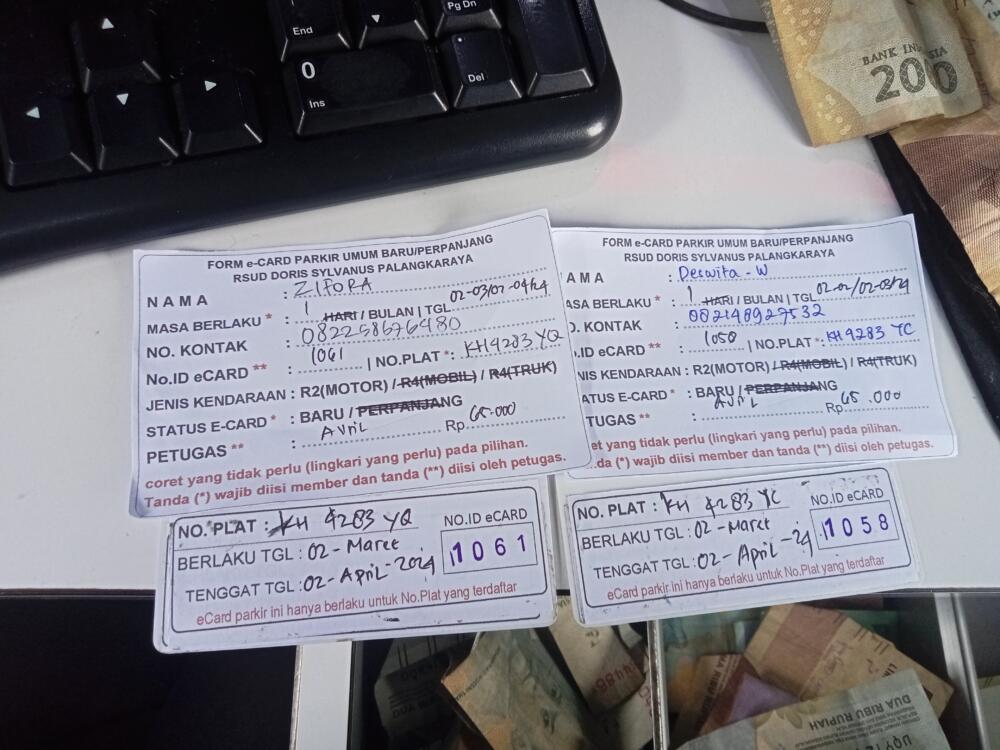 End
Pg Dn
0
Ins
Del
BANK INDONESIA
200
FORM e-CARD PARKIR UMUM BARU/PERPANJANG
RSUD DORIS SYLVANUS PALANGKARAYA
NAMA : ZIFORA
MASA BERLAKU * : 1 HARI / BULAN | TGL 02-03/02-04/24
NO. KONTAK : 082258676480
No.ID eCARD ** : 1061 | NO.PLAT *: KH 4283 YQ
JENIS KENDARAAN : R2(MOTOR) / R4(MOBIL) / R4(TRUK)
STATUS E-CARD * : BARU / PERPANJANG
PETUGAS ** : Avril Rp. 65.000
coret yang tidak perlu (lingkari yang perlu) pada pilihan.
Tanda (*) wajib diisi member dan tanda (**) diisi oleh petugas.
NO. PLAT : KH 4283 YQ
NO.ID eCARD
BERLAKU TGL : 02-Maret
1061
TENGGAT TGL : 02-April-2024
eCard parkir ini hanya berlaku untuk No.Plat yang terdaftar
FORM e-CARD PARKIR UMUM BARU/PERPANJANG
RSUD DORIS SYLVANUS PALANGKARAYA
AMA : Deswita - W
ASA BERLAKU * : 1 HARI / BULAN | TGL
O. KONTAK : 082148927532
.ID eCARD ** : | NO.PLAT *: KH 4283 YC
NIS KENDARAAN : R2(MOTOR) / R4(MOBIL) / R4(TRUK)
ATUS E-CARD * : BARU / PERPANJANG
TUGAS ** : Avril Rp. 65.000
ret yang tidak perlu (lingkari yang perlu) pada pilihan.
da (*) wajib diisi member dan tanda (**) diisi oleh petugas.
NO. PLAT : KH 4283 YC
NO.ID eCARD
BERLAKU TGL : 02-Maret
1058
TENGGAT TGL : 02-April-24
eCard parkir ini hanya berlaku untuk No.Plat yang terdaftar
DUA RIBU RUPIAH